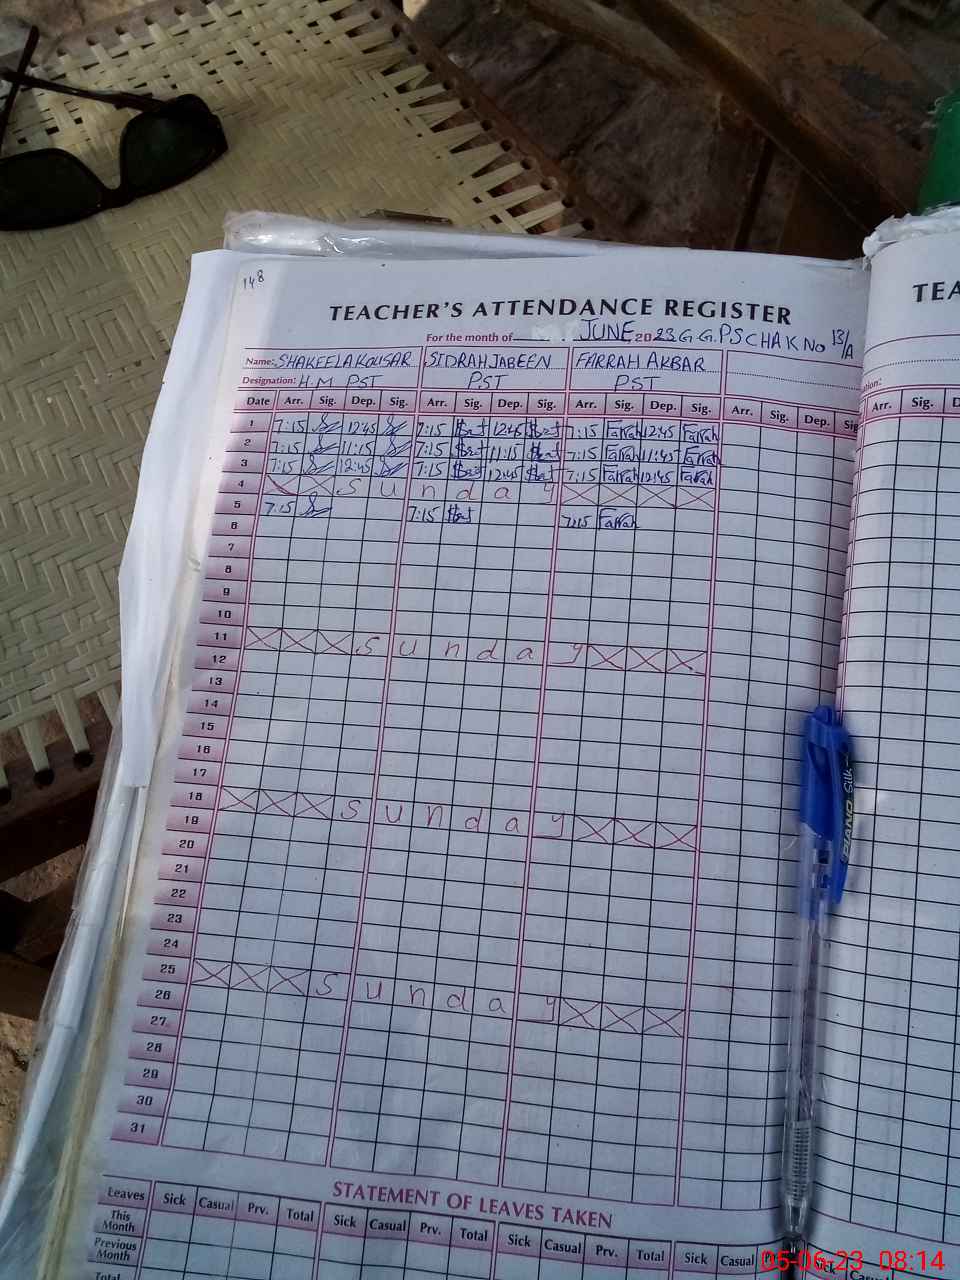 148
TEACHER'S ATTENDANCE REGISTER
TEA
For the month of JUNE, 2023 G G.P.S CHAK NO 13/A
Name: SHAKEELA KOUSAR SIDRAH JABEEN FARRAH AKBAR
Designation: H.M PST PST PST
Date Arr. Sig. Dep. Sig. Arr. Sig. Dep. Sig. Arr. Sig. Dep. Sig. Arr. Sig. Dep. Sig Arr. Sig. D
1 7:15 12:45 7:15 12:45 7:15 Farrah 12:45 Farrah
2 7:15 11:15 7:15 11:15 7:15 Farrah 11:45 Farrah
3 7:15 12:45 7:15 12:45 7:15 Farrah 12:45 Farrah
4 Sunday
5 7:15 7:15 7:15 Farrah
6
7
8
9
10
11 Sunday
12
13
14
15
16
17
18 Sunday
19
20
21
22
23
24
25 Sunday
26
27
28
29
30
31
PIANO Silk
STATEMENT OF LEAVES TAKEN
Leaves Sick Casual Prv. Total Sick Casual Prv. Total Sick Casual Prv. Total Sick Casual Sick
This Month
Previous Month
Total
05-06-23 08:14